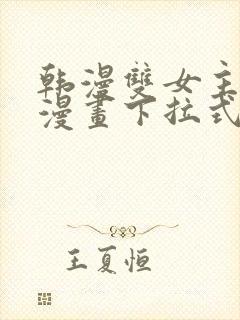 韩漫雙女主
漫畫下拉式
王夏恒